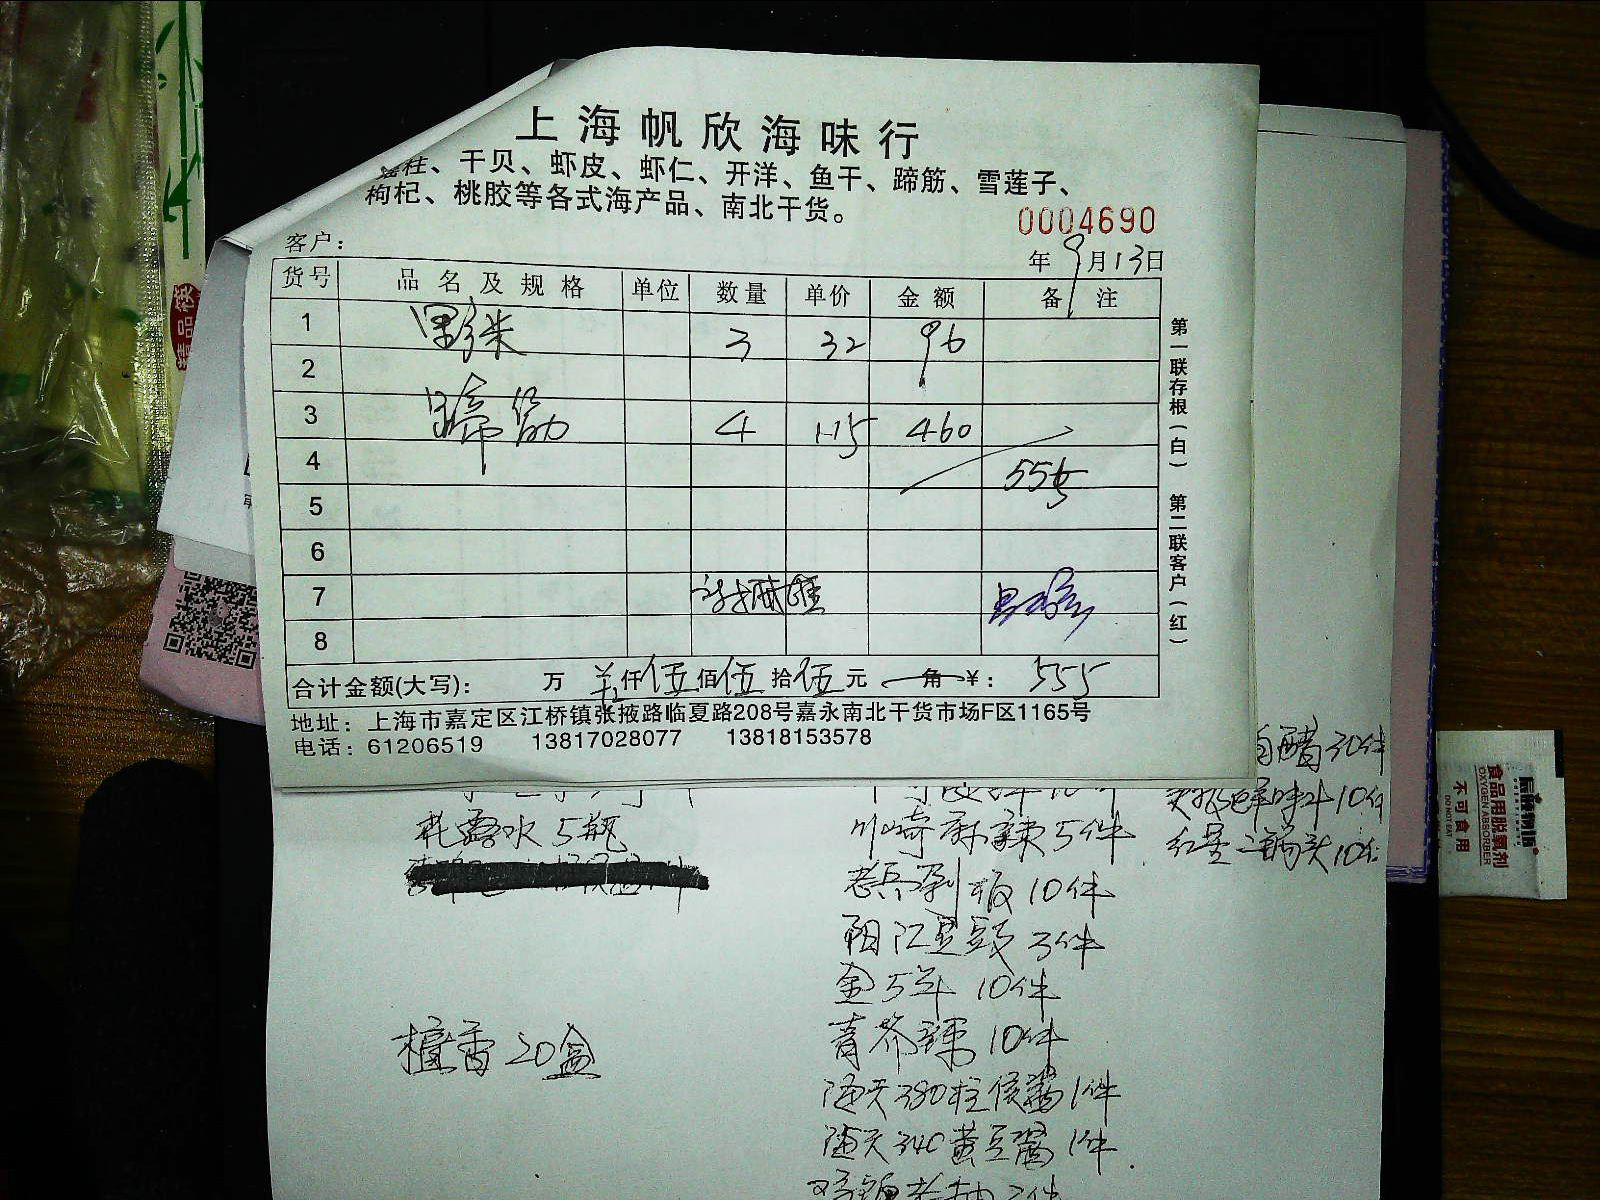 上海帆欣海味行
瑶柱、干贝、虾皮、虾仁、开洋、鱼干、蹄筋、雪莲子、
枸杞、桃胶等各式海产品、南北干货。
0004690
客户：
年 9月13日
货号 品名及规格 单位 数量 单价 金额 备注
1 3 32 96
2
3 蹄筋 4 115 460
4
5
6
7
8
合计金额(大写)： 万 仟伍佰伍拾伍元 角 ¥： 555
地址：上海市嘉定区江桥镇张掖路临夏路208号嘉永南北干货市场F区1165号
电话：61206519 13817028077 13818153578
第一联存根(白) 第二联客户(红)
精品筷
花露水 5瓶
檀香 20盒
川崎麻辣 5件
10件
阳江豆豉 3件
金5年 10件
青芥辣 10件
海天380柱侯酱 1件
海天340黄豆酱 1件
白醋30件
鲜味汁10件
红星二锅头10
食品用脱氧剂
OXYGEN ABSORBER
不可食用
DO NOT EAT